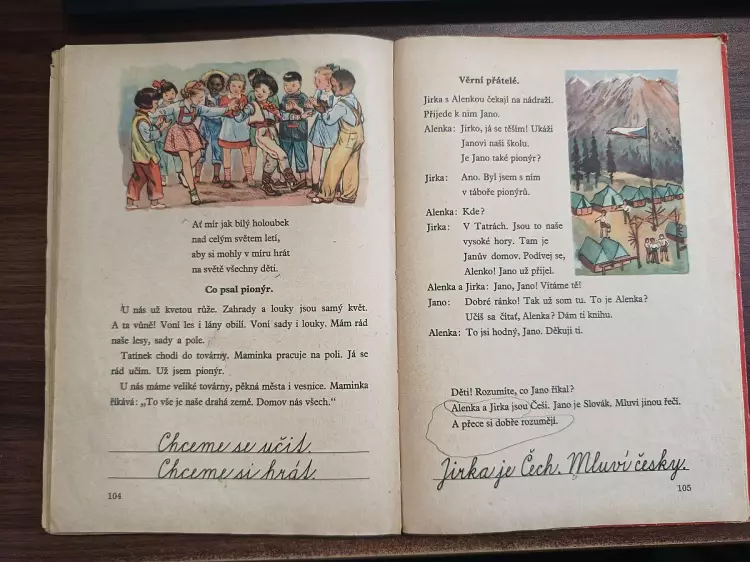 Ať mír jak bílý holoubek
nad celým světem letí,
aby si mohly v míru hrát
na světě všechny děti.
Co psal pionýr.
U nás už kvetou růže. Zahrady a louky jsou samý květ.
A ta vůně! Voní les i lány obilí. Voní sady i louky. Mám rád
naše lesy, sady a pole.
Tatínek chodí do továrny. Maminka pracuje na poli. Já se
rád učím. Už jsem pionýr.
U nás máme veliké továrny, pěkná města i vesnice. Maminka
říkává: „To vše je naše drahá země. Domov nás všech.“
Chceme se učit.
Chceme si hrát.
104
Věrní přátelé.
Jirka s Alenkou čekají na nádraží.
Přijede k nim Jano.
Alenka: Jirko, já se těším! Ukáži
Janovi naši školu.
Je Jano také pionýr?
Jirka: Ano. Byl jsem s ním
v táboře pionýrů.
Alenka: Kde?
Jirka: V Tatrách. Jsou to naše
vysoké hory. Tam je
Janův domov. Podívej se,
Alenko! Jano už přijel.
Alenka a Jirka: Jano, Jano! Vítáme tě!
Jano: Dobré ránko! Tak už som tu. To je Alenka?
Učíš sa čítať, Alenka? Dám ti knihu.
Alenka: To jsi hodný, Jano. Děkuji ti.
Děti! Rozumíte, co Jano říkal?
Alenka a Jirka jsou Češi. Jano je Slovák. Mluví jinou řečí.
A přece si dobře rozumějí.
Jirka je Čech. Mluví česky.
105